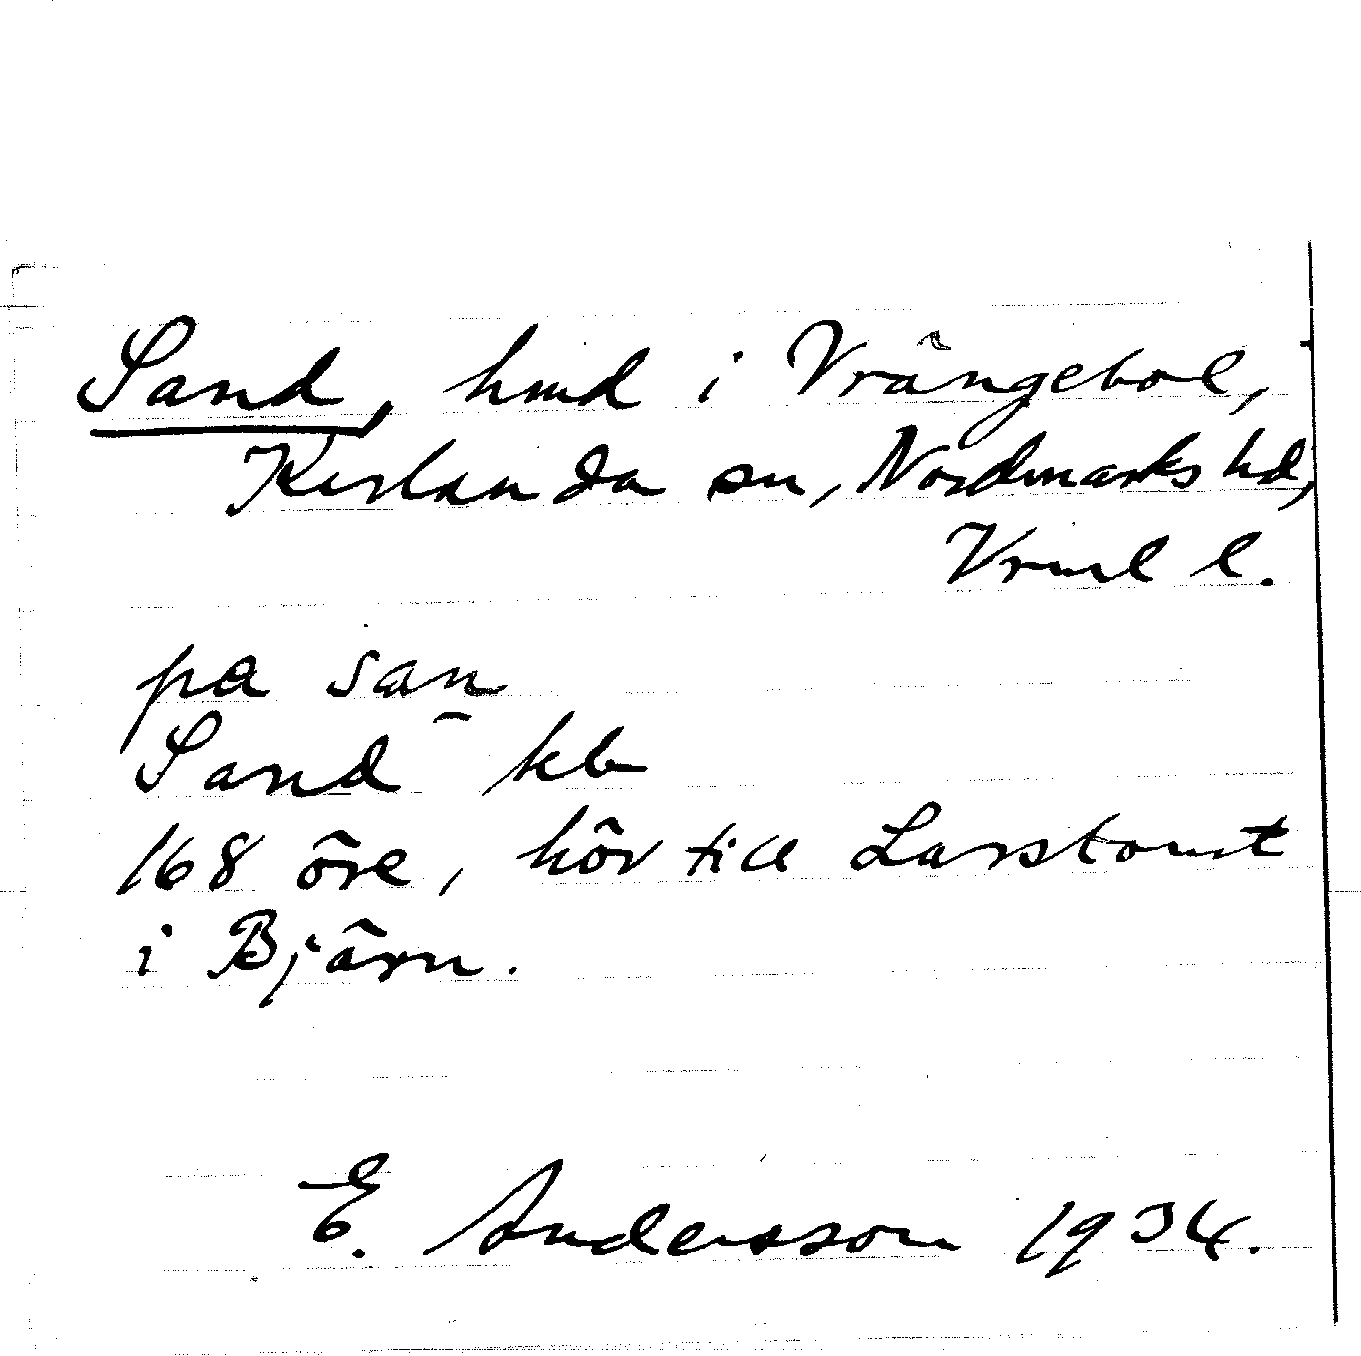 Sand, hmd i Vrängebol,
Karlanda sn, Nordmarks hd,
Vrml l.
pa san
Sand kb
168 öre, hör till Larstomt
i Bjärn.
E. Andersson 1934.